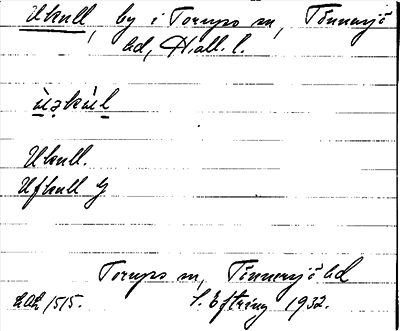 Ukull, by i Torups sn, Tönnersjö
hd, Hall. l.
ùəkùl
Ukull.
Ufkull G
Torups sn, Tönnersjö hd
1515. S. Eftring 1932.